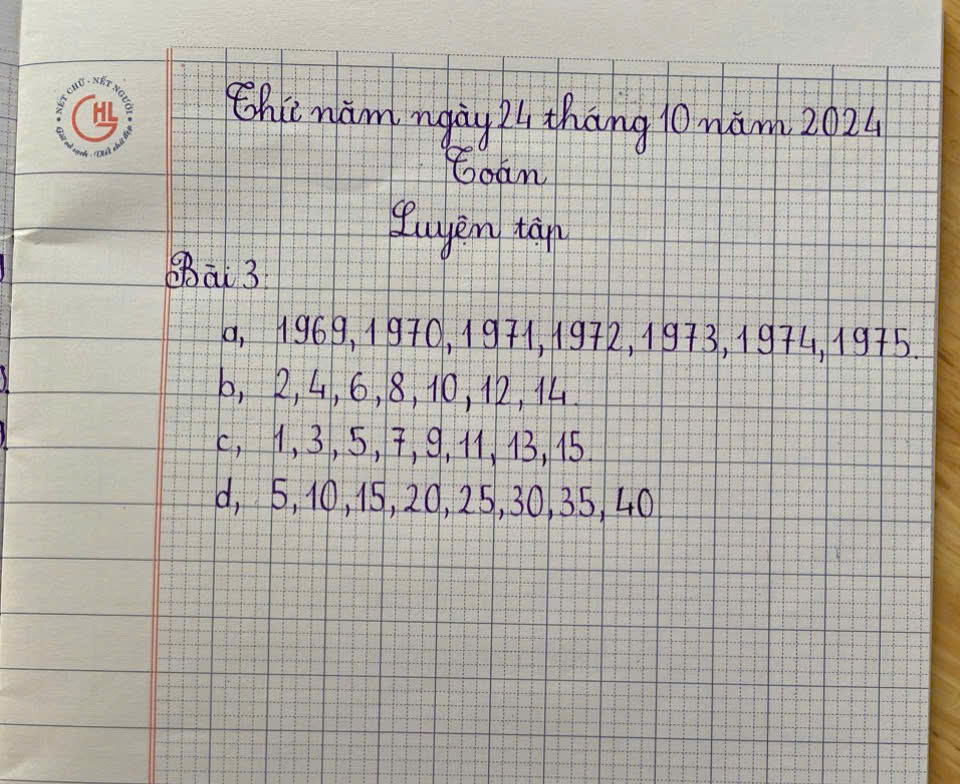 NÉT CHỮ - NẾT NGƯỜI
HL
Thứ năm ngày 24 tháng 10 năm 2024
Toán
Luyện tập
Bài 3:
a, 1969, 1970, 1971, 1972, 1973, 1974, 1975.
b, 2, 4, 6, 8, 10, 12, 14.
c, 1, 3, 5, 7, 9, 11, 13, 15.
d, 5, 10, 15, 20, 25, 30, 35, 40